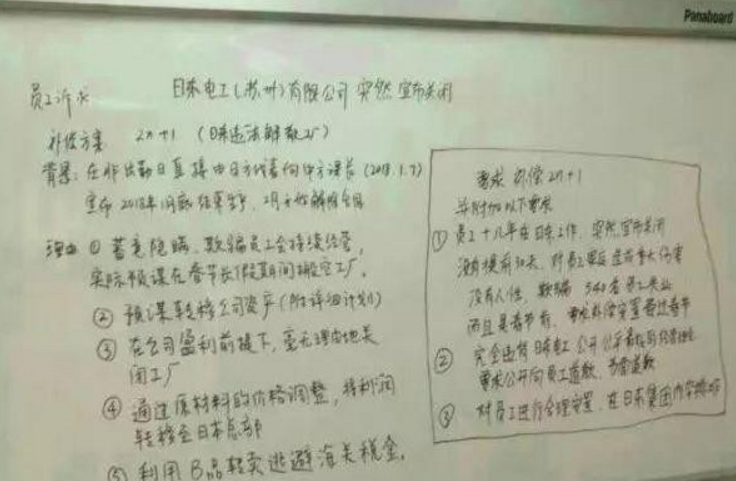 Panaboard
员工诉求
日东电工(苏州)有限公司 突然宣布关闭
补偿方案 2n+1 (日东违法解散工厂)
背景: 在非出勤日直接由日方代表向中方课长 (2018.1.7)
宣布2018年1月底结束生产, 2月开始解除合同
理由 ① 蓄意隐瞒、欺骗员工会持续经营,
实际预谋在春节长假期间搬空工厂。
② 预谋转移公司资产(附详细计划)
③ 在公司盈利前提下, 毫无理由地关
闭工厂
④ 通过原材料的价格调整, 将利润
转移至日本总部
⑤ 利用B品转卖逃避海关税金。
要求 补偿 2n+1
并附加以下要求
① 员工十几年在日东工作, 突然宣布关闭
没有提前30天, 对员工造成重大伤害
没有人性, 欺骗 540 名员工失业
而且是春节前, 要求
② 完全违背日东电工公开公平
要求公开向员工道歉, 书面道歉
③ 对员工进行合理安置, 在日东集团内